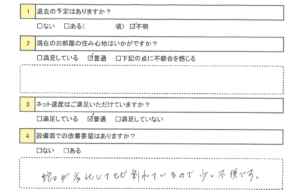 1 退去の予定はありますか？
□ない □ある( 頃) ☑不明
2 現在のお部屋の住み心地はいかがですか？
□満足している ☑普通 □下記の点に不都合を感じる
3 ネット速度はご満足いただけていますか？
□満足している ☑普通 □満足していない
4 設備面での改善要望はありますか？
□ない □ある
蛇口が劣化してヒビ割れているので少し不便です。